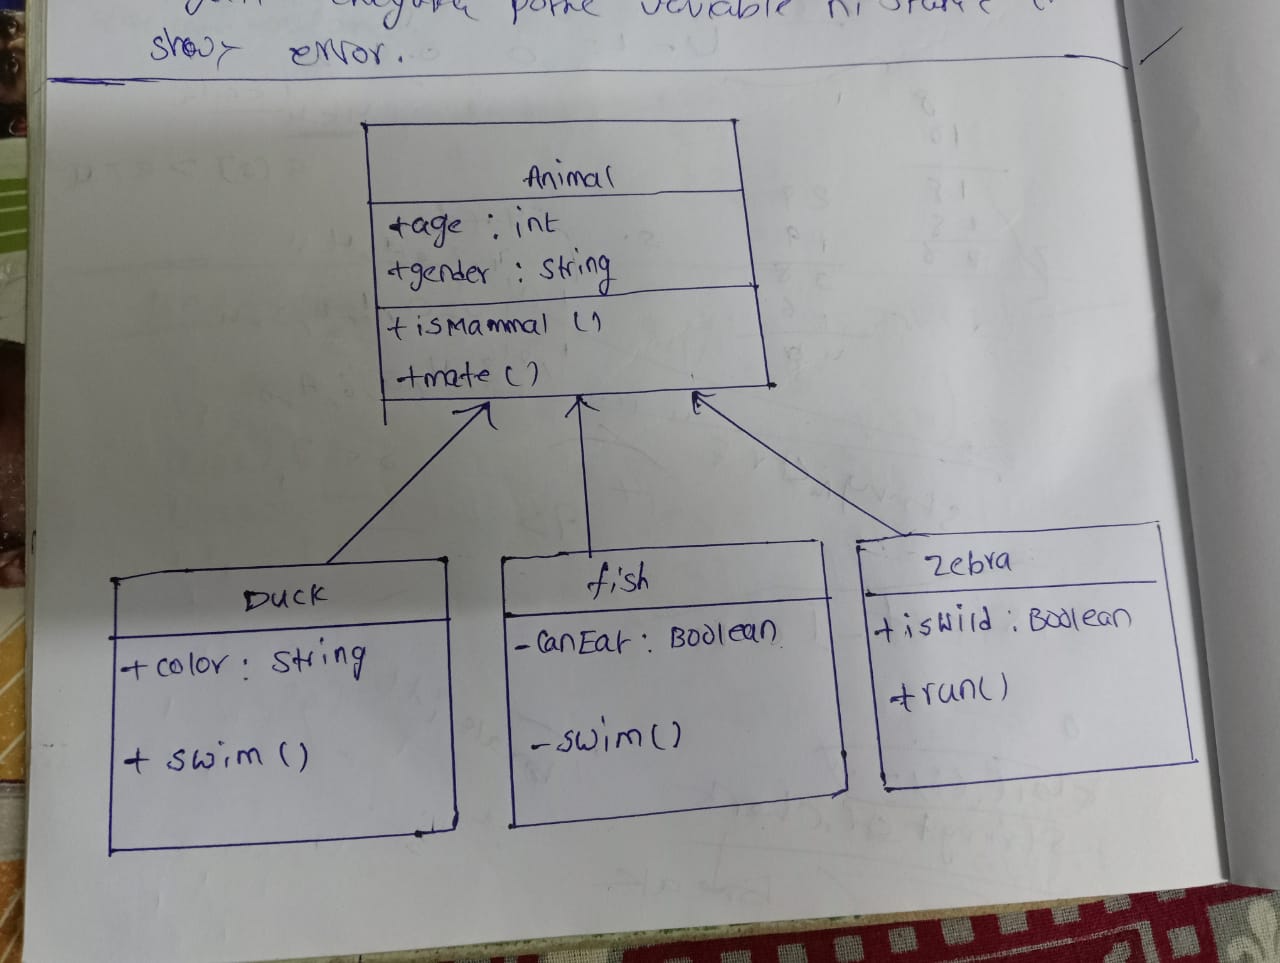 variable
show error.
Animal
+age : int
+gender : String
+ isMammal ()
+mate ()
DUCK
+ color : String
+ swim ()
fish
- CanEat : Boolean
- swim ()
Zebra
+ isWild : Boolean
+ run()